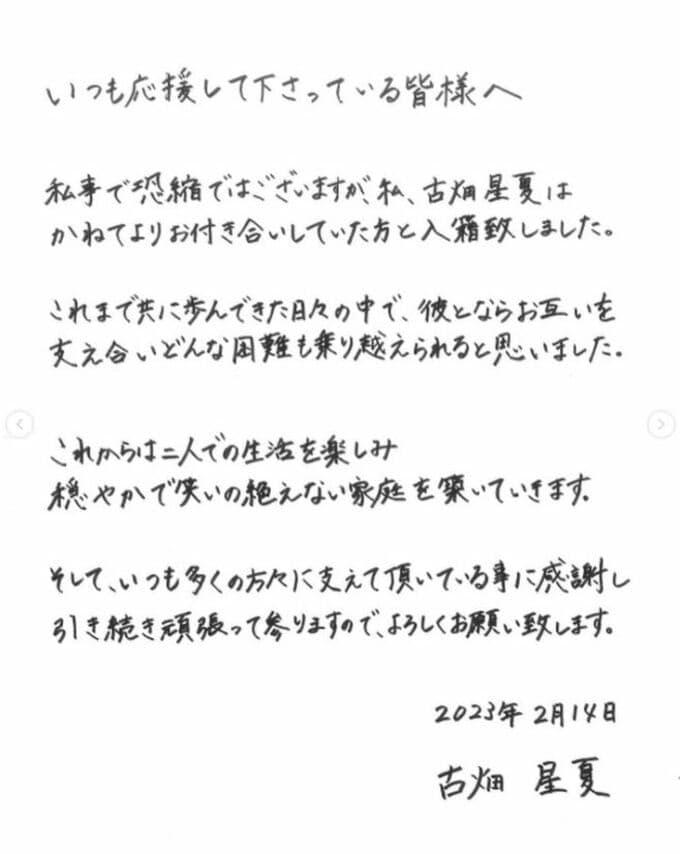 いつも応援して下さっている皆様へ
私事で恐縮ではございますが、私、古畑星夏は
かねてよりお付き合いしていた方と入籍致しました。
これまで共に歩んできた日々の中で、彼とならお互いを
支え合いどんな困難も乗り越えられると思いました。
これからは二人での生活を楽しみ
穏やかで笑いの絶えない家庭を築いていきます。
そして、いつも多くの方々に支えて頂いている事に感謝し
引き続き頑張って参りますので、よろしくお願い致します。
2023年 2月14日
古畑 星夏